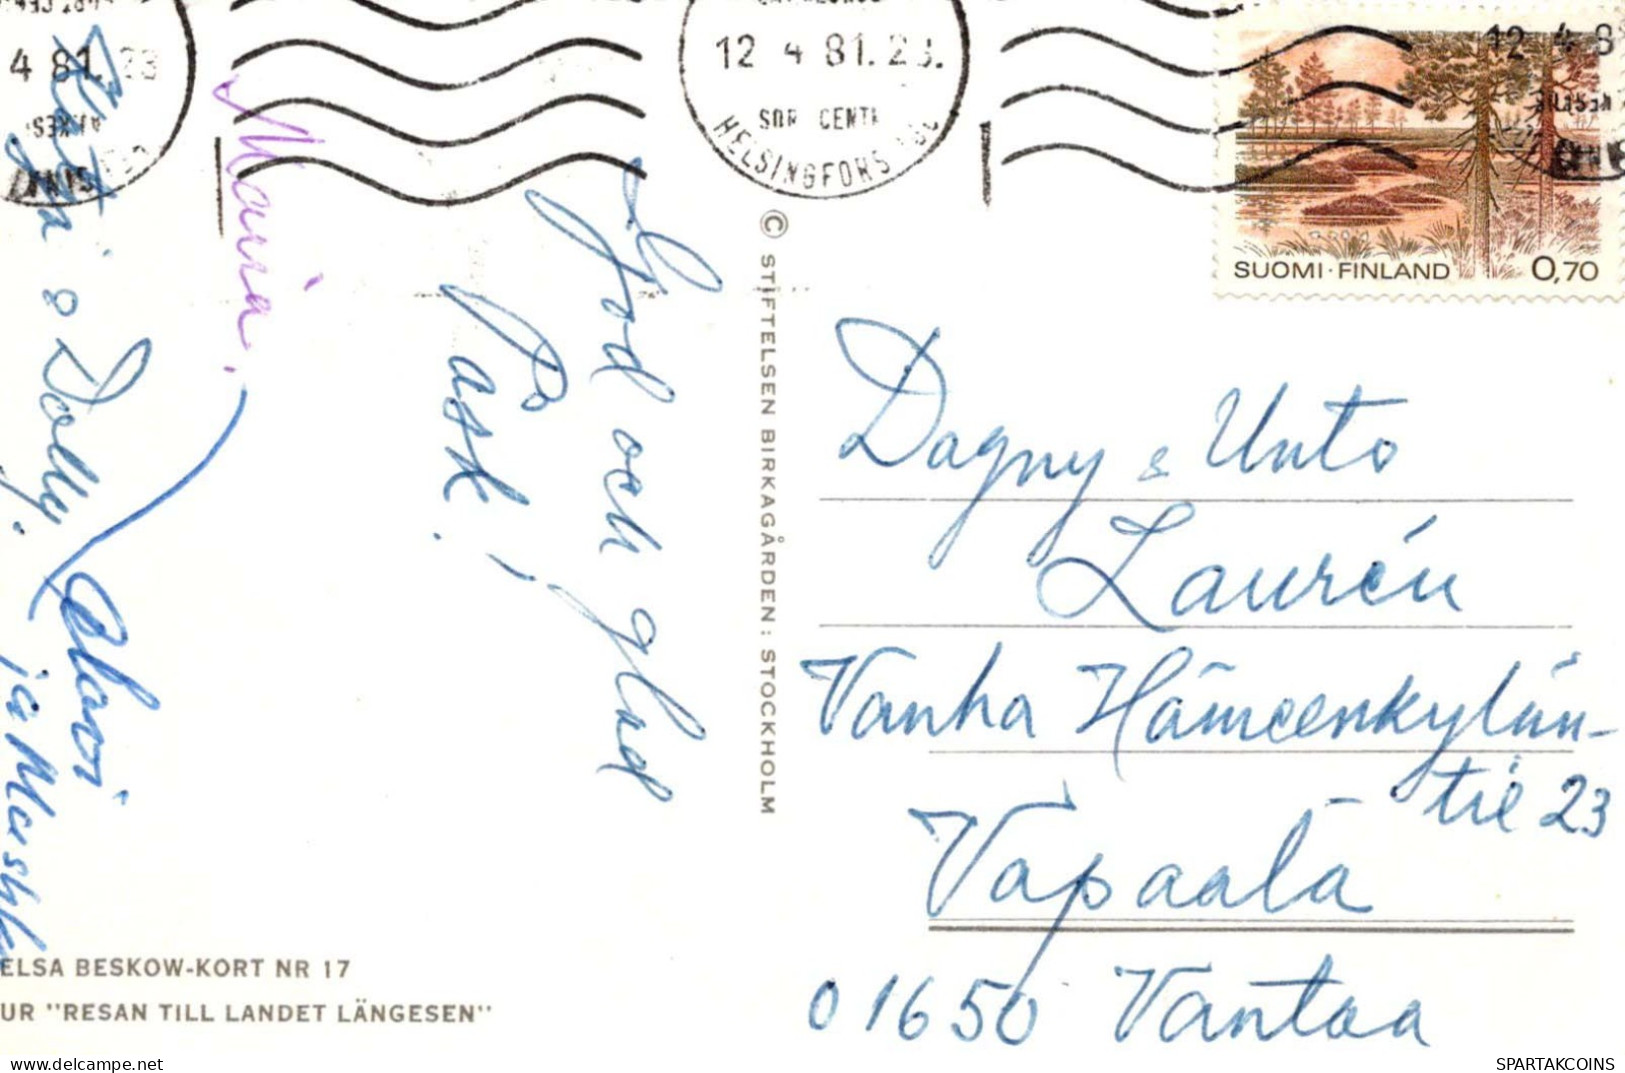 4 81.23
12 4 81.23.
HELSINGFORS
12 4 8
SUOMI·FINLAND 0,70
God och glad
Påsk!
Maria.
& Dolly.
ja
© STIFTELSEN BIRKAGÅRDEN: STOCKHOLM
Dagny & Unto
Laurén
Vanha Hämeenkylän-
tie 23
Vapaala
01650 Vantaa
ELSA BESKOW-KORT NR 17
UR "RESAN TILL LANDET LÄNGESEN"
SPARTAKCOINS